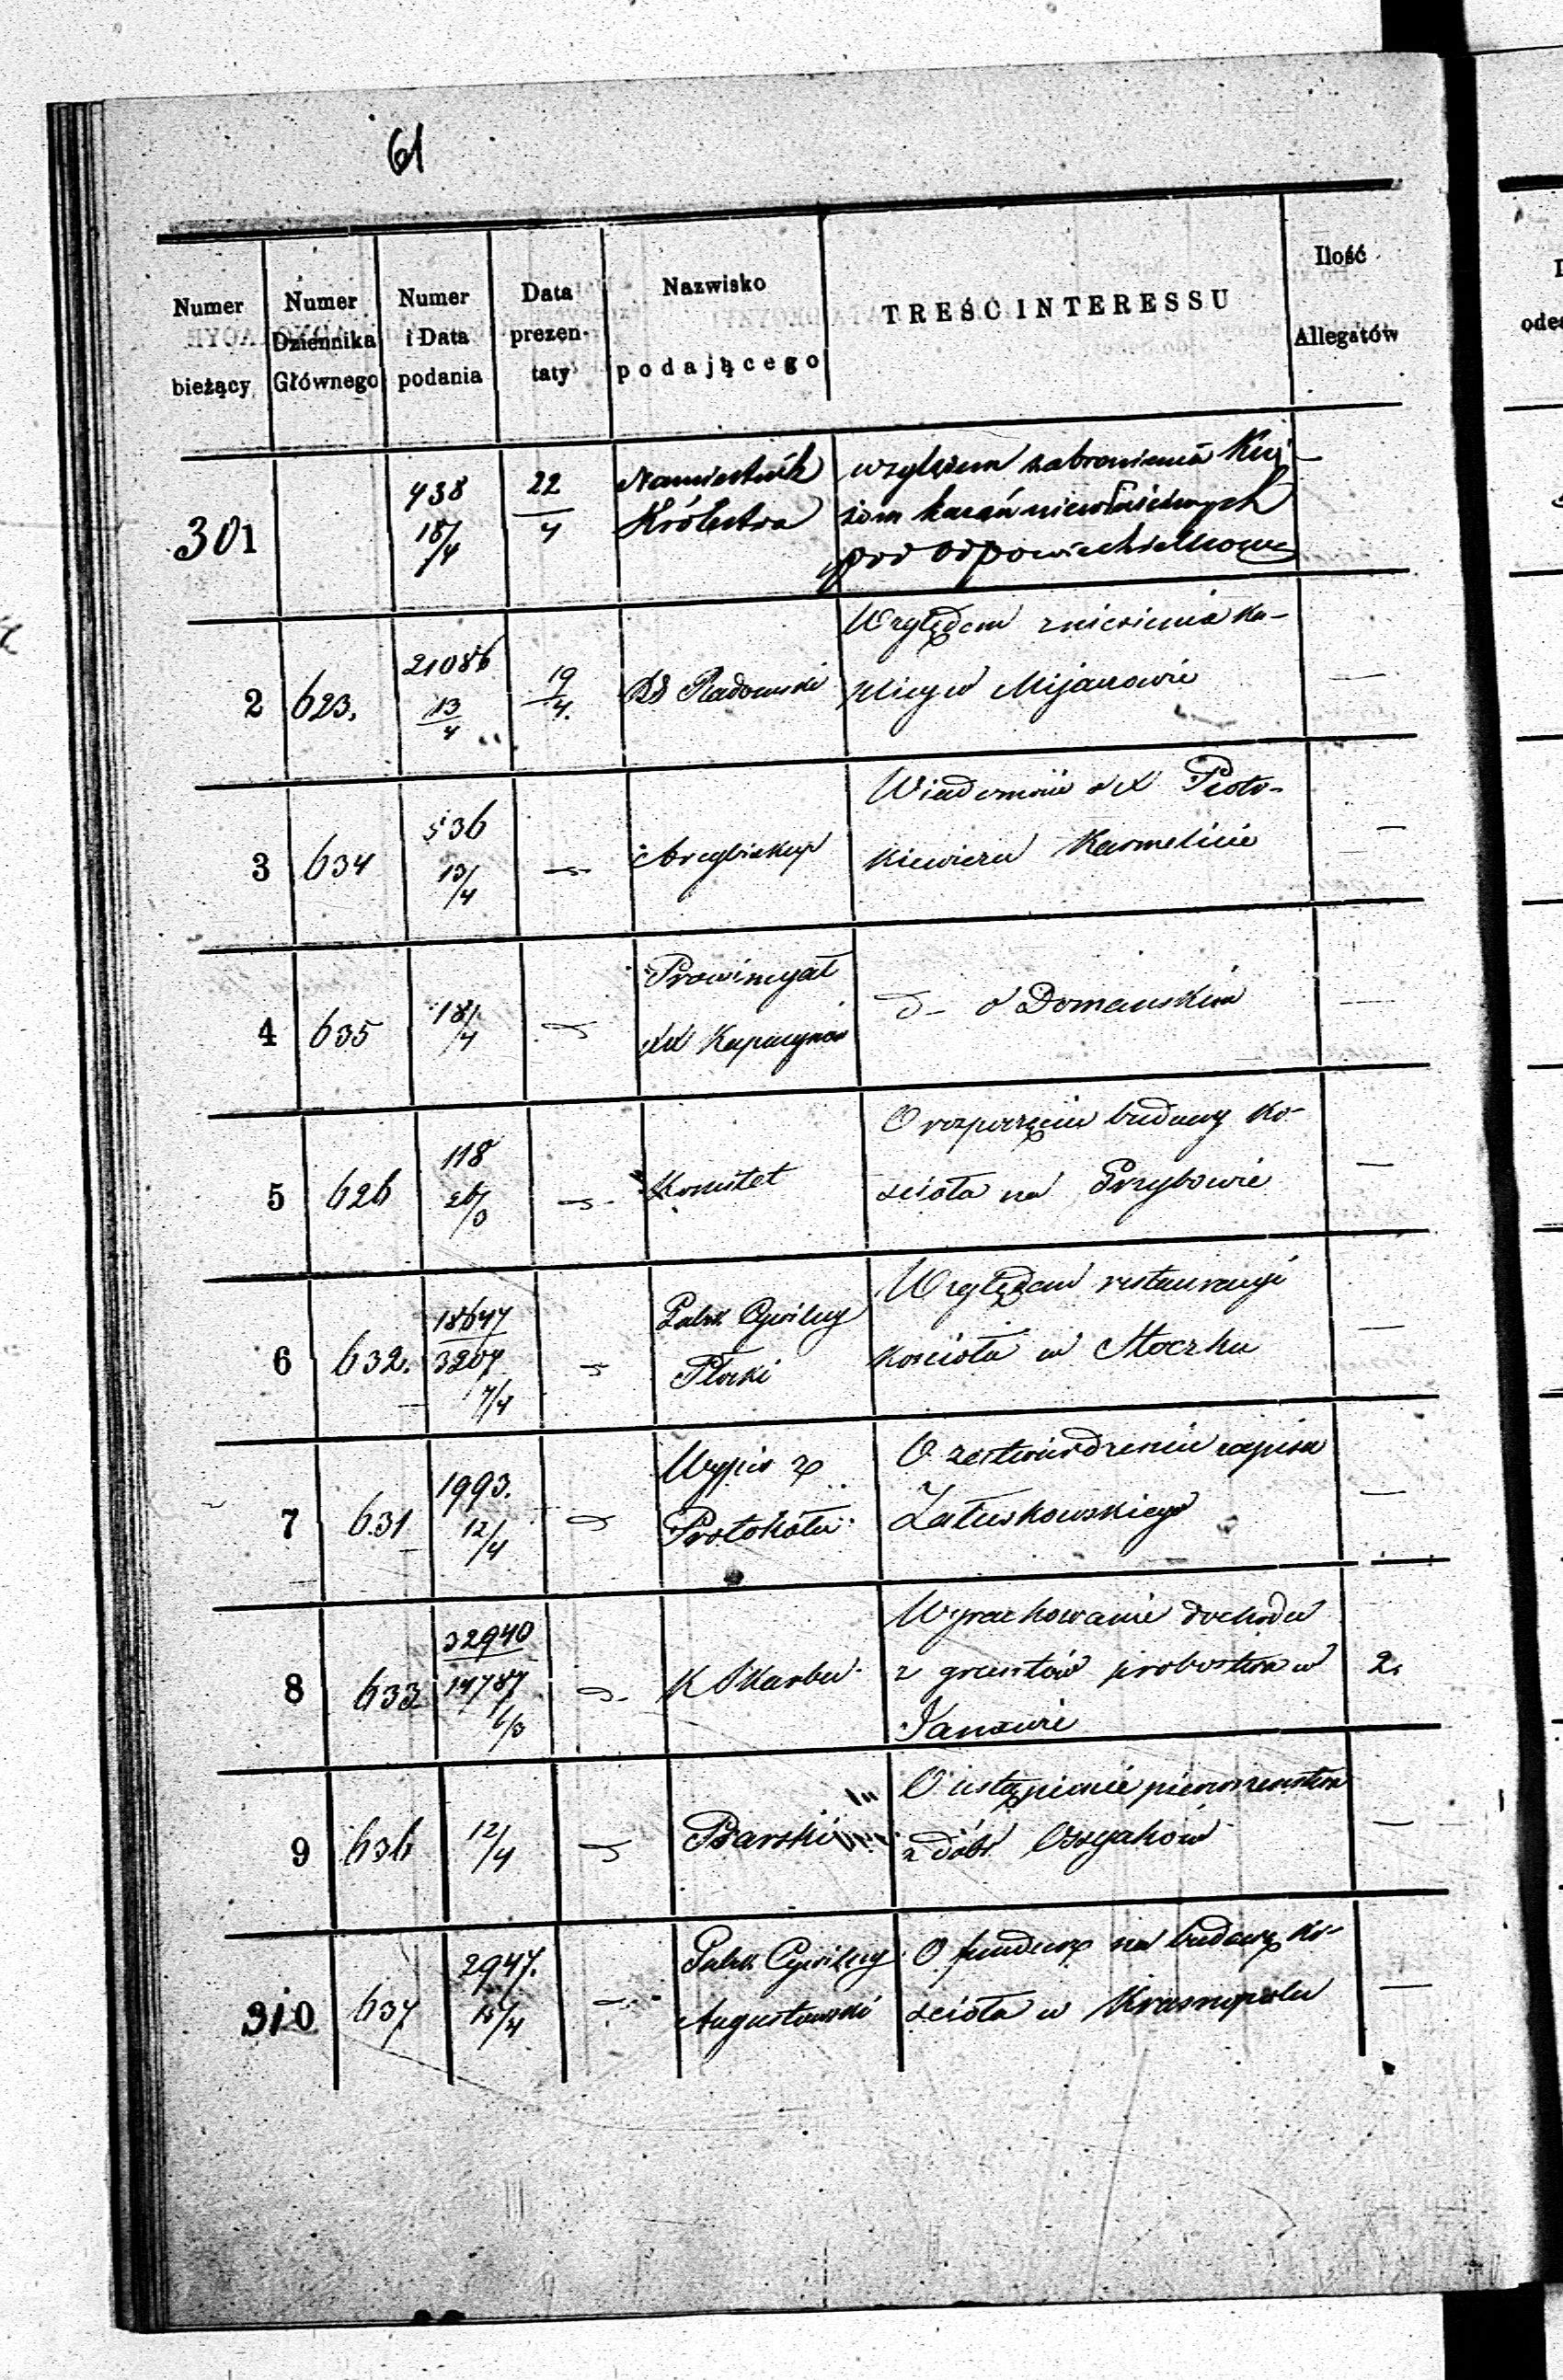 61
Numer bieżący
Numer Dziennika Głównego
Numer i Data podania
Data prezentaty
Nazwisko podającego
TREŚĆ INTERESSU
Ilość Allegatów
301 938 18/4 22/4 Namiestnik Królestwa względem zabronienia Księ-
żom kazań niewłaściwych
pod odpowiedzialnością —
2 623. 21086 13/4 19/4. Radomski Względem zniesienia ka-
plicy w Mijanowie —
3 634 536 13/4 Arcybiskup Wiadomość o X Pioto-
kiewiczu Karmelicie —
4 635 18/4 Prowincyał XX Kapucynów d– o Domańskim —
5 626 118 26/3 Komitet O rozpoczęciu budowy ko-
ścioła na Grzybowie —
6 632. 18647 3207 7/4 Cywilny Płocki Względem restauracyi
kościoła w Stoczku —
7 631 1993. 12/4 Wypis z Protokółu O zatwierdzenie zapisu
Załuskowskiego —
8 633 32940 14787 6/3 K Skarbu Wyrachowanie dochodu
z gruntów probostwa w
Janowie 2.
9 636 12/4 Psarski O ustąpienie pierwszeństwa
z dóbr Osyaków —
310 637 2947. 15/4 Cywilny Augustowski O fundusz na budowę ko-
ścioła w Krasnopolu —